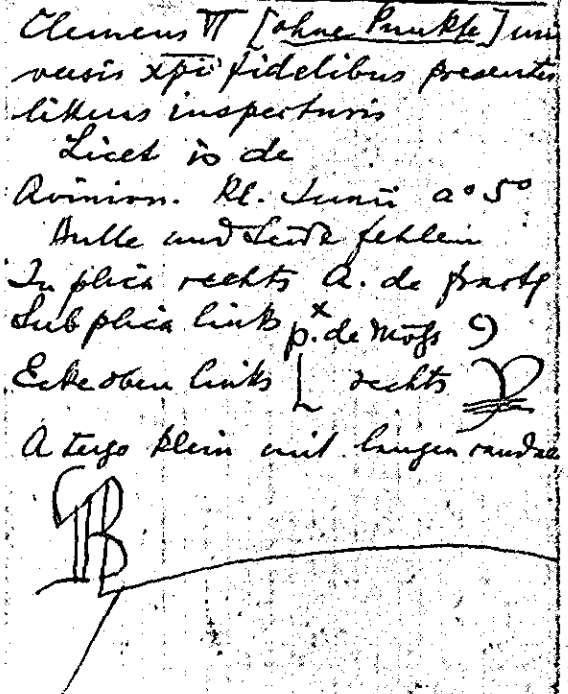 Clemens VI [ohne Punkte] uni
versis xpi fidelibus presentes
litteras inspecturis
Licet is de
Avinion. Kl. Junii a° 5°
Bulle und Seide fehlen
In plica rechts A. de
Sub plica links p. de Moss
Ecke oben links L rechts
A tergo klein mit langen caudae
B